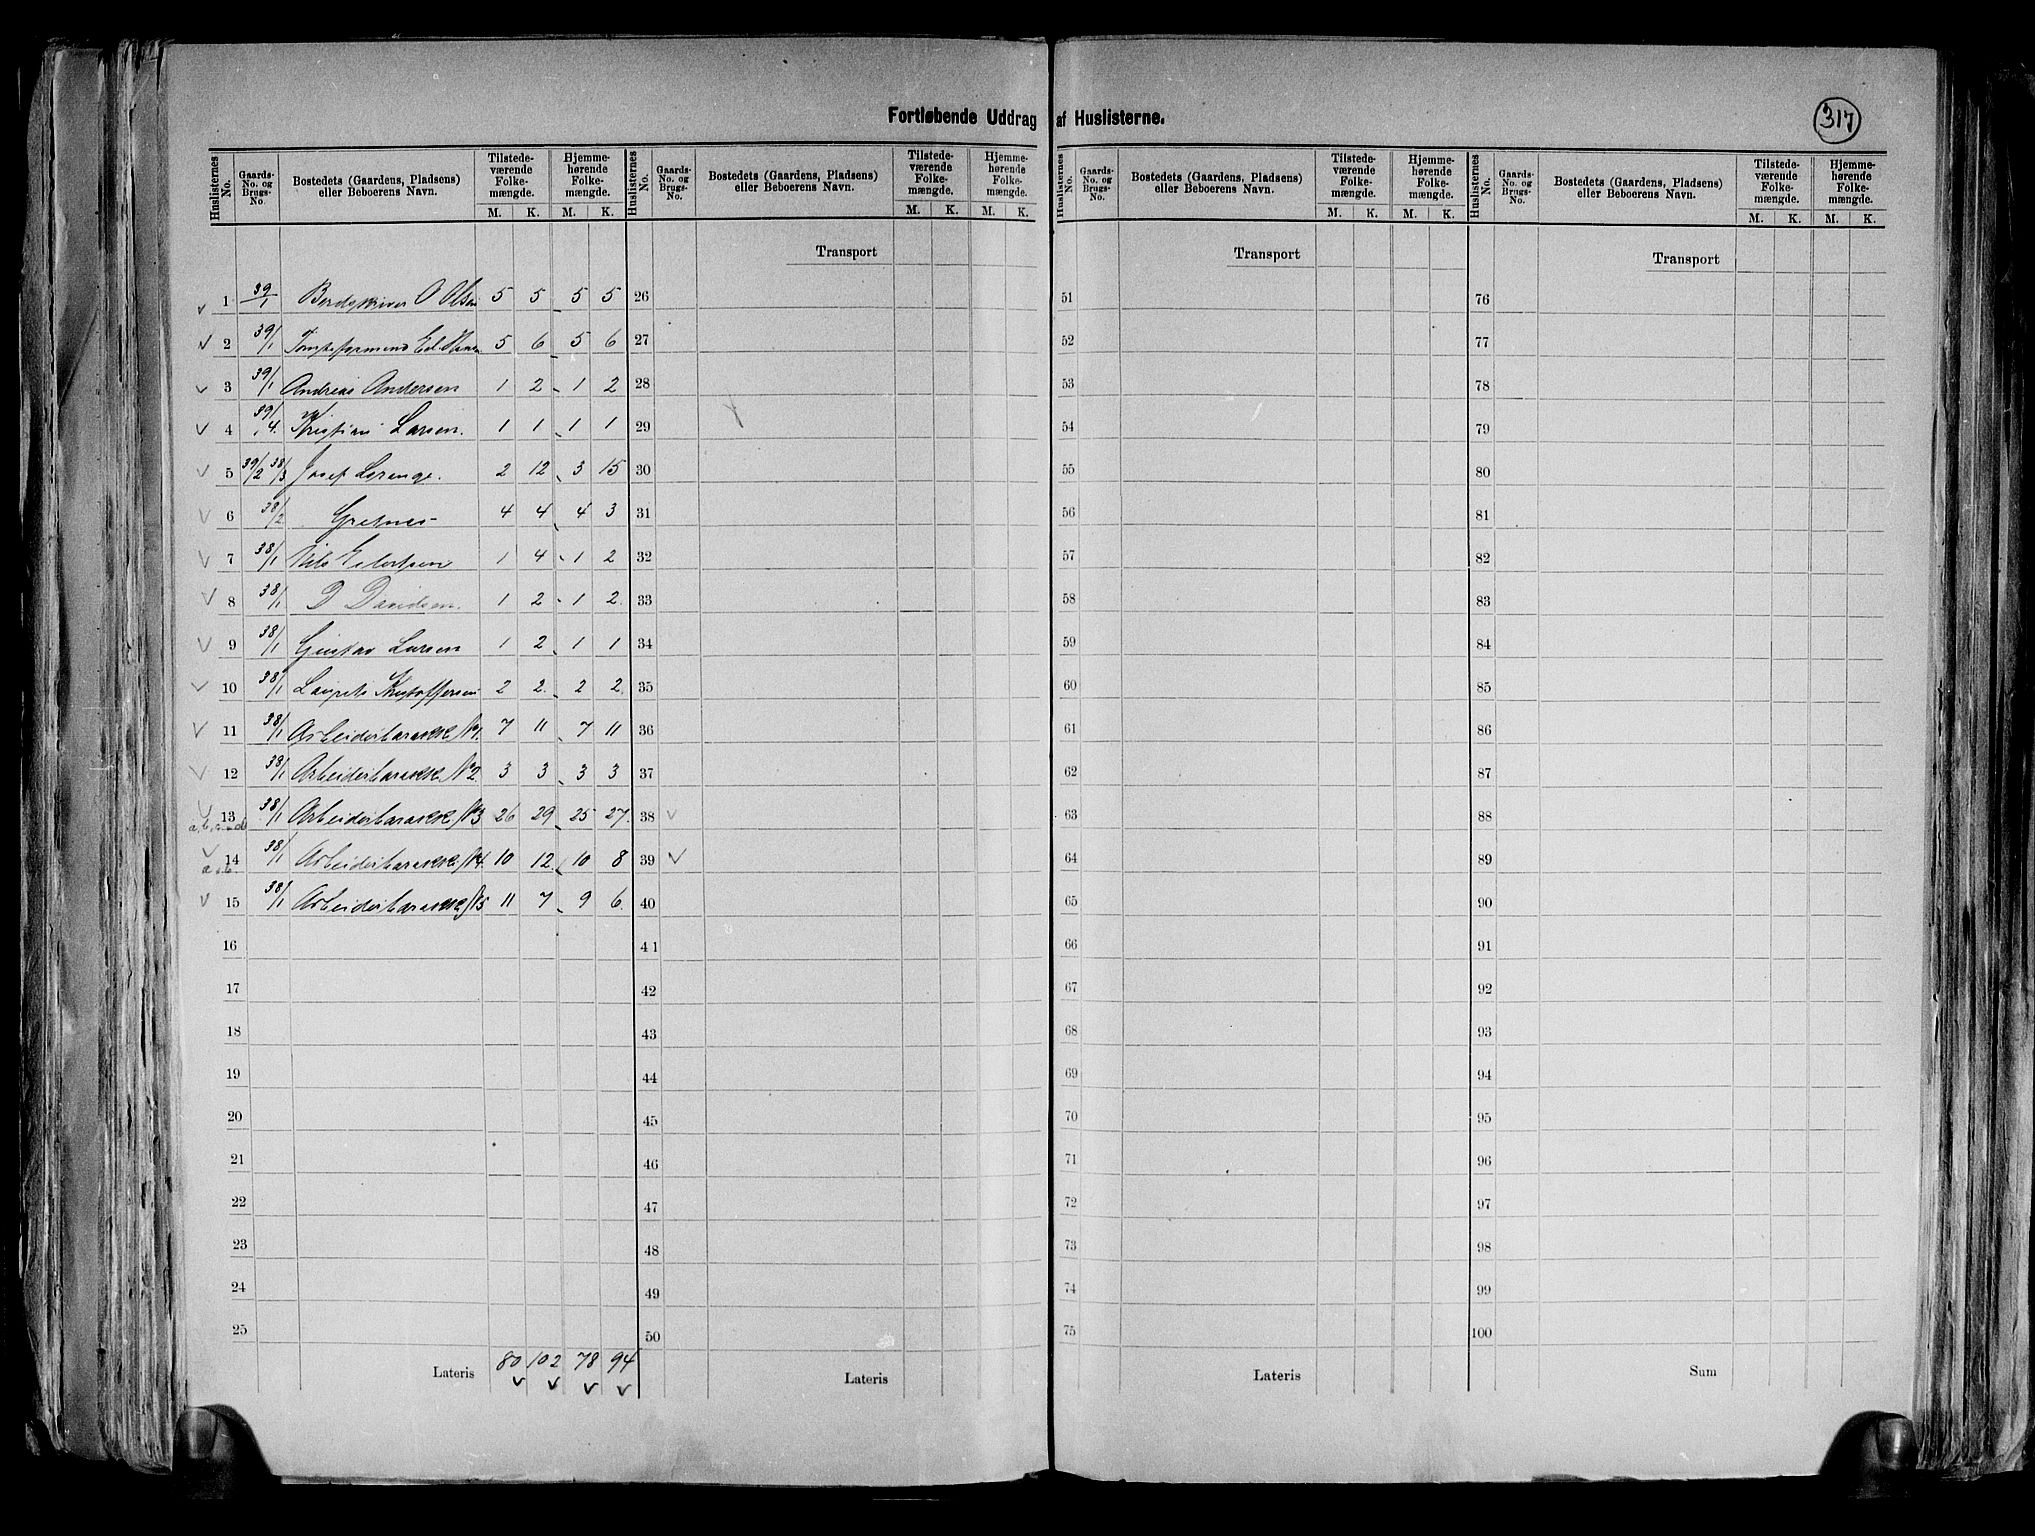 Fortløbende Uddrag af Huslisterne.
317
Huslisternes No. Gaards-No. og Brugs-No. Bostedets (Gaardens, Pladsens) eller Beboerens Navn. Tilstedeværende Folkemængde. M. K. Hjemmehørende Folkemængde. M. K.
Huslisternes No. Gaards-No. og Brugs-No. Bostedets (Gaardens, Pladsens) eller Beboerens Navn. Tilstedeværende Folkemængde. M. K. Hjemmehørende Folkemængde. M. K.
Huslisternes No. Gaards-No. og Brugs-No. Bostedets (Gaardens, Pladsens) eller Beboerens Navn. Tilstedeværende Folkemængde. M. K. Hjemmehørende Folkemængde. M. K.
Huslisternes No. Gaards-No. og Brugs-No. Bostedets (Gaardens, Pladsens) eller Beboerens Navn. Tilstedeværende Folkemængde. M. K. Hjemmehørende Folkemængde. M. K.
Transport Transport Transport
1 39/1 O Olsen 5 5 5 5 26 51 76
2 39/1 Tomteformand Ed. Hansen 5 6 5 6 27 52 77
3 39/1 Andreas Andersen 1 2 1 2 28 53 78
4 39/1,4. Kristian Larsen. 1 1 1 1 29 54 79
5 39/2 38/3 Josef Lorange. 2 12 3 15 30 55 80
6 38/2 Gretnes 4 4 4 3 31 56 81
7 38/1 Nils Eilertsen 1 4 1 2 32 57 82
8 38/1 D Davidsen. 1 2 1 2. 33 58 83
9 38/1 Gustav Larsen 1 2 1 1 34 59 84
10 38/1 Laurits Kristoffersen 2 2. 2 2. 35 60 85
11 38/1 Arbeiderbarakk N1. 7 11 7 11 36 61 86
12 38/1 Arbeiderbarakk. N2 3 3 3 3 37 62 87
13 a, b, c, d 38/1 Arbeiderbarakk N3 26 29 25 27. 38 63 88
14 a. b. 38/1 Arbeiderbarakk. N4. 10 12. 10 8 39 64 89
15 38/1 Arbeiderbarakk N5 11 7 9 6. 40 65 90
16 41 66 91
17 42 67 92
18 43 68 93
19 44 69 94
20 45 70 95
21 46 71 96
22 47 72 97
23 48 73 98
24 49 74 99
25 50 75 100
Lateris 80 102 78 94 Lateris Lateris Sum